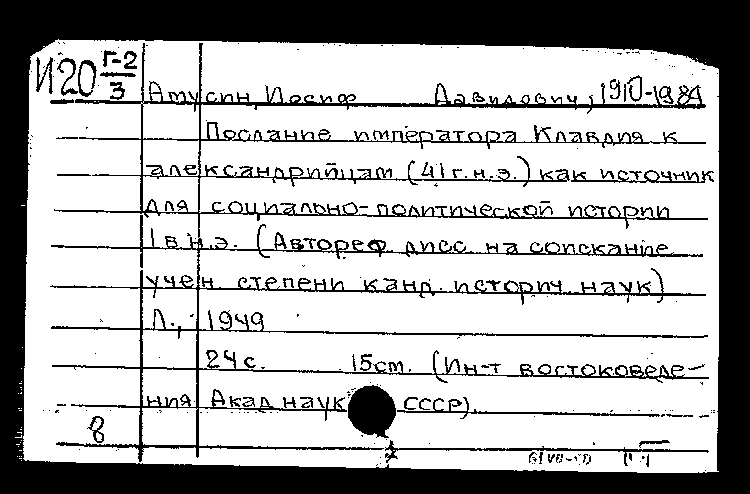 И20 Г-2/3
Амусин, Иосиф Давидович, 1910-1984
Послание императора Клавдия к
александрийцам (41 г.н.э.) как источник
для социально-политической истории
I в н.э. (Автореф дисс. на соискание
учен степени канд. историч. наук)
Л., 1949
24 с. 15 см. (Ин-т востоковеде-
ния Акад наук СССР).
8